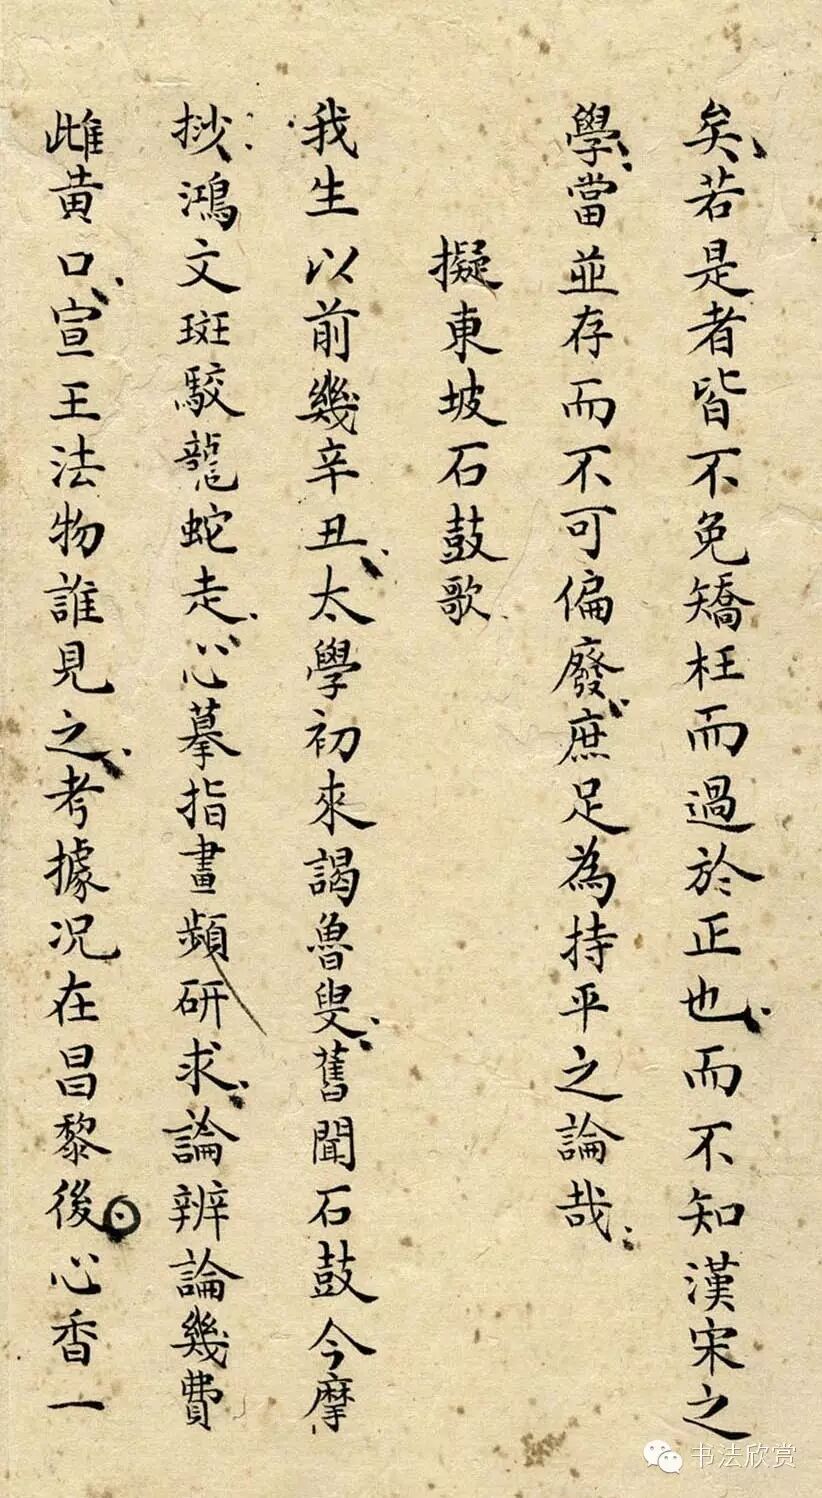 矣若是者皆不免矯枉而過於正也而不知漢宋之
學當並存而不可偏廢庶足為持平之論哉
擬東坡石鼓歌
我生以前幾辛丑太學初來謁魯叟舊聞石鼓今摩
挱鴻文斑駮龍蛇走心摹指畫頻研求論辨論幾費
雌黃口宣王法物誰見之考據况在昌黎後心香一
书法欣赏